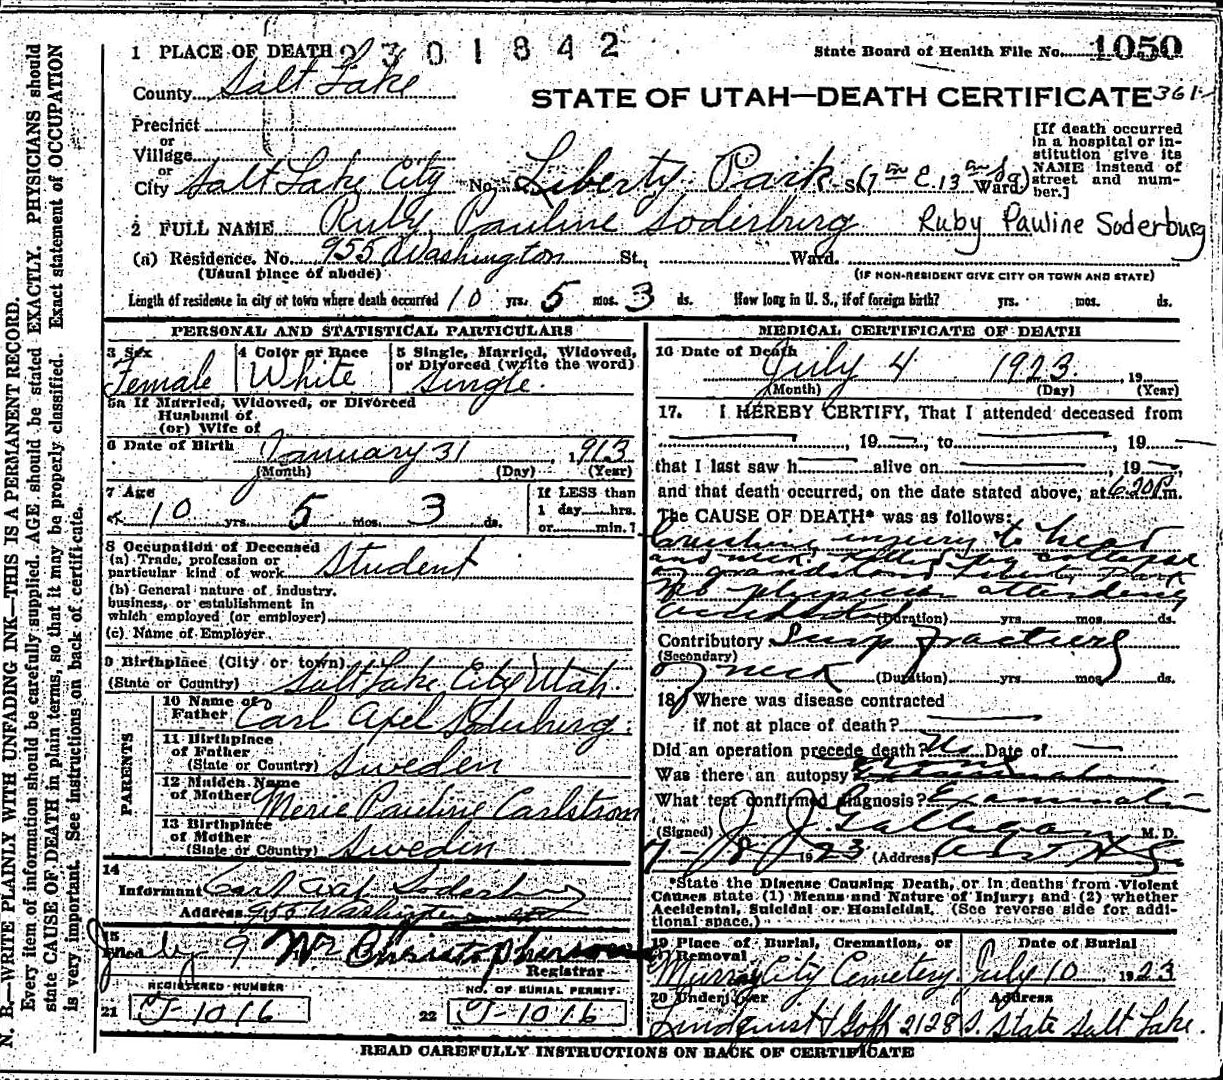 1 PLACE OF DEATH 2301842
State Board of Health File No. 1050
County Salt Lake
STATE OF UTAH—DEATH CERTIFICATE 361
Precinct
or
Village
or
City Salt Lake City No. Liberty Park St. (7 E. 13 Ward)
[If death occurred
in a hospital or in-
stitution give its
NAME instead of
street and num-
ber.]
2 FULL NAME Ruby Pauline Soderburg Ruby Pauline Soderburg
(a) Residence. No. 955 Washington St., Ward.
(Usual place of abode) (IF NON-RESIDENT GIVE CITY OR TOWN AND STATE)
Length of residence in city or town where death occurred 10 yrs. 5 mos. 3 ds. How long in U. S., if of foreign birth? yrs. mos. ds.
PERSONAL AND STATISTICAL PARTICULARS
3 Sex
Female
4 Color or Race
White
5 Single, Married, Widowed,
or Divorced (write the word)
Single.
5a If Married, Widowed, or Divorced
Husband of
(or) Wife of
6 Date of Birth January 31, 1913
(Month) (Day) (Year)
7 Age
10 yrs. 5 mos. 3 ds.
If LESS than
1 day....hrs.
or....min.?
8 Occupation of Deceased
(a) Trade, profession or
particular kind of work Student
(b) General nature of industry,
business, or establishment in
which employed (or employer)
(c) Name of Employer
9 Birthplace (City or town)
(State or Country) Salt Lake City Utah.
PARENTS
10 Name of
Father Carl Axel Soderburg.
11 Birthplace
of Father
(State or Country) Sweden
12 Maiden Name
of Mother Merie Pauline Carlstrom
13 Birthplace
of Mother
(State or Country) Sweden
14
Informant Carl Axel Soderburg
Address 955 Washington
15
Filed July 9 Wm Christopherson
Registrar
REGISTERED NUMBER
21 J-1016
NO. OF BURIAL PERMIT.
22 J-1016
MEDICAL CERTIFICATE OF DEATH
16 Date of Death July 4 1923, 19
(Month) (Day) (Year)
17. I HEREBY CERTIFY, That I attended deceased from
, 19 , to , 19
that I last saw h alive on , 19 ,
and that death occurred, on the date stated above, at 6:20 P.m.
The CAUSE OF DEATH* was as follows:
Crushing injury to head
and neck. Killed by collapse
of grandstand Liberty Park
No physician attending
accidental (Duration) yrs. mos. ds.
Contributory fractures
(Secondary)
of neck (Duration) yrs. mos. ds.
18 Where was disease contracted
if not at place of death?
Did an operation precede death? No Date of
Was there an autopsy
What test confirmed diagnosis? Examination
(Signed) J J Galligan M. D.
7-8 1923 (Address)
*State the Disease Causing Death, or in deaths from Violent
Causes state (1) Means and Nature of Injury; and (2) whether
Accidental, Suicidal or Homicidal. (See reverse side for addi-
tional space.)
19 Place of Burial, Cremation, or
Removal
Murray City Cemetery
Date of Burial
July 10 1923
20 Undertaker Address
Lindquist & Goff 2128 S. State Salt Lake.
READ CAREFULLY INSTRUCTIONS ON BACK OF CERTIFICATE
N. B.—WRITE PLAINLY WITH UNFADING INK—THIS IS A PERMANENT RECORD.
Every item of information should be carefully supplied. AGE should be stated EXACTLY. PHYSICIANS should
state CAUSE OF DEATH in plain terms, so that it may be properly classified. Exact statement of OCCUPATION
is very important. See instructions on back of certificate.